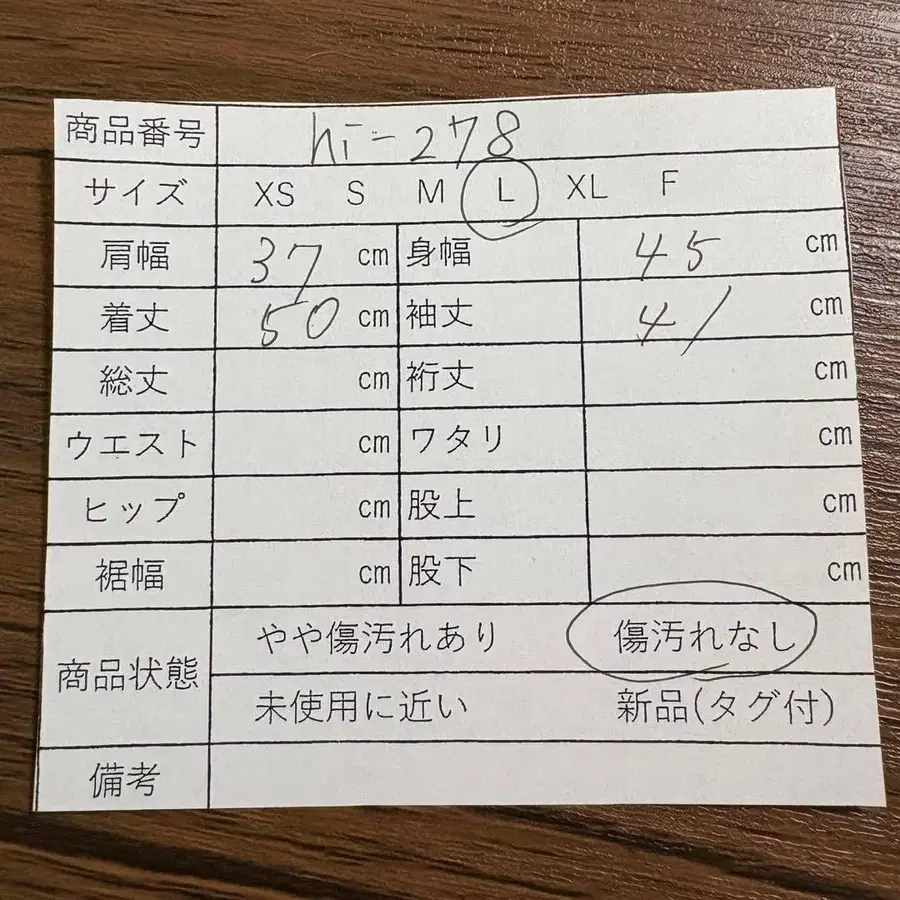 商品番号 hi-278
サイズ XS S M L XL F
肩幅 37 cm 身幅 45 cm
着丈 50 cm 袖丈 41 cm
総丈 cm 裄丈 cm
ウエスト cm ワタリ cm
ヒップ cm 股上 cm
裾幅 cm 股下 cm
商品状態 やや傷汚れあり 傷汚れなし
未使用に近い 新品(タグ付)
備考